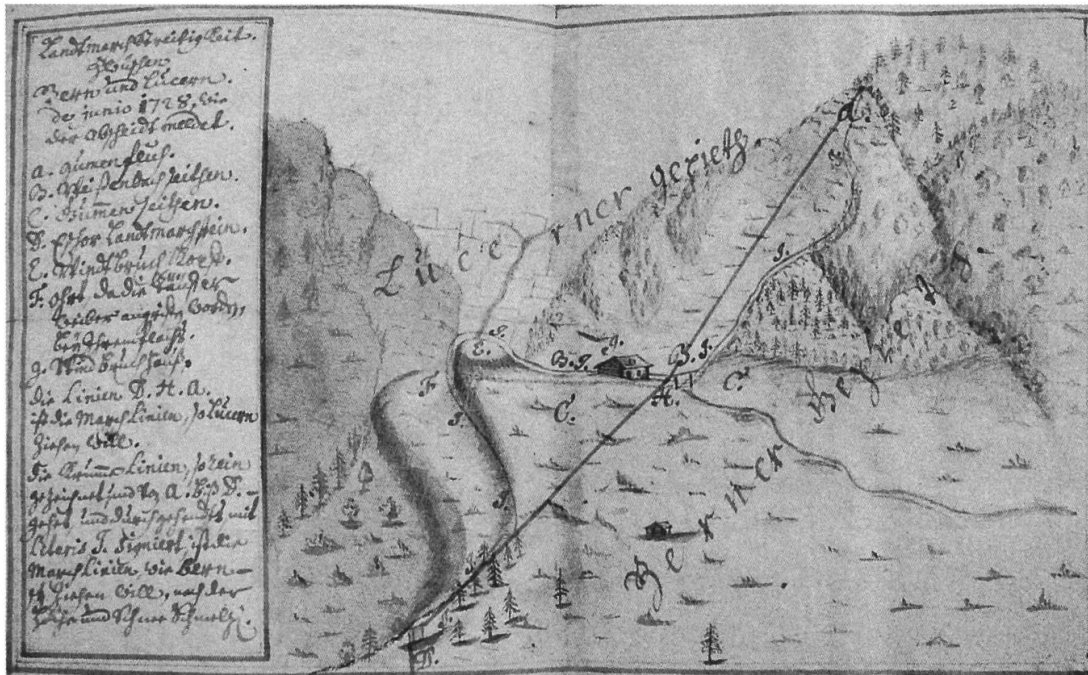 Landtmarch Streitigkeit.
Zwüschen
Bern und Lucern.
de junio 1728, wie
der Abscheidt meldet.
A. gumenfluh.
B. Weißenbach seithen.
C. Bumen seithen.
D. Landtmarchstein.
E. Windtbruch
F. ohrt da die
g. Windbruch hauß.
die Linien D. H. A.
ist die March Linien, so Lucern
ziehen will.
die Krume Linien, so rein
gezeichnet und von A. biß D.
geht, und durchgehends mit
Literis J. signiert, ist die
March Linien, wie Bern
es ziehen will, nach der
und Schnee Schmeltzi.
Lücerner gerieth.
Berner
Berner
A.
J.
J.
E.
B. J.
g.
B. J.
F.
C.
H.
C.
J.
J.
D.